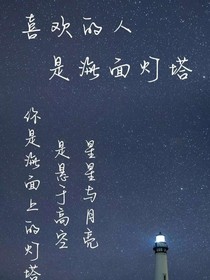 喜欢的人
是海面灯塔
星星与月亮
是悬于高空
你是海面上的灯塔